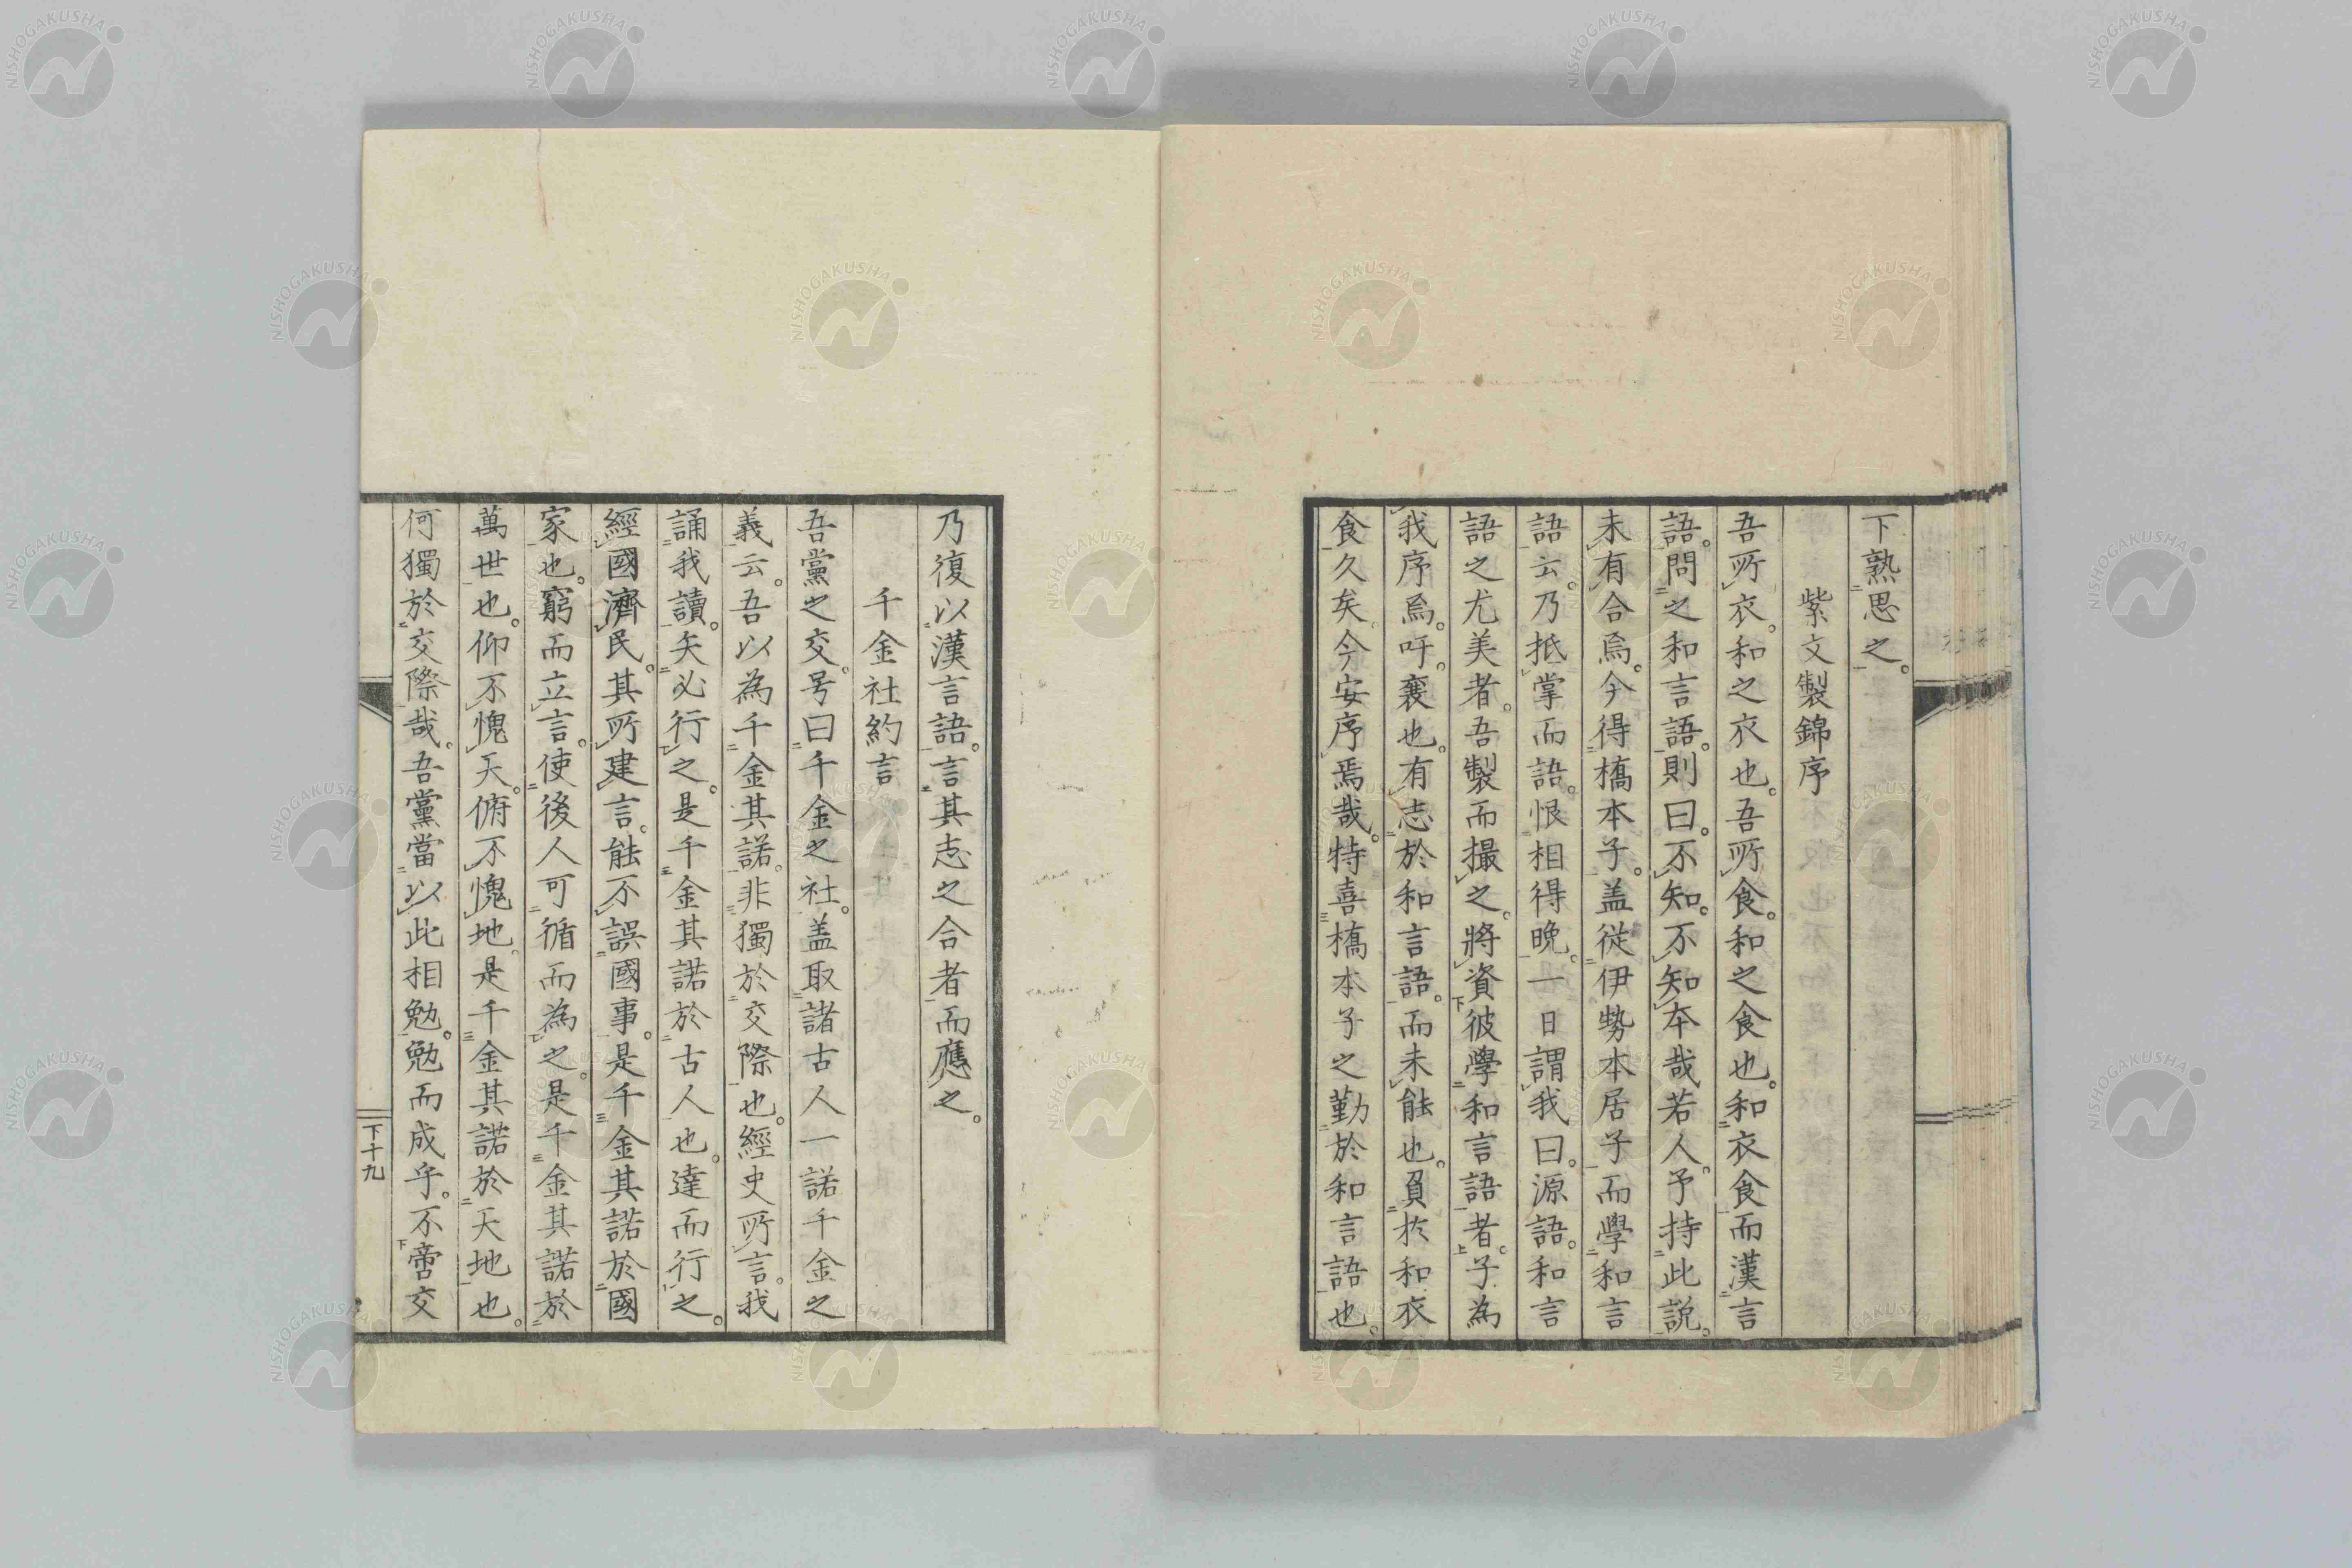 下熟思之。
紫文製錦序
吾所衣。和之衣也。吾所食。和之食也。和衣食而漢言
語。問之和言語。則曰。不知。不知本哉若人。予持此說。
未有合焉。今得橋本子。蓋從伊勢本居子而學和言
語云。乃抵掌而語。恨相得晚。一日謂我曰。源語。和言
語之尤美者。吾製而撮之。將資彼學和言語者。子為
我序焉。吁。褎也。有志於和言語。而未能也。負於和衣
食久矣。今安序焉哉。特喜橋本子之勤於和言語也。
乃復以漢言語。言其志之合者而應之。
千金社約言
吾黨之交。号曰千金之社。盖取諸古人一諾千金之
義云。吾以為千金其諾。非獨於交際也。經史所言。我
誦我讀。矢必行之。是千金其諾於古人也。達而行之。
經國濟民。其所建言。能不誤國事。是千金其諾於國
家也。窮而立言。使後人可循而為之。是千金其諾於
萬世也。仰不愧天。俯不愧地。是千金其諾於天地也。
何獨於交際哉。吾黨當以此相勉。勉而成乎。不啻交
下十九
NISHOGAKUSHA